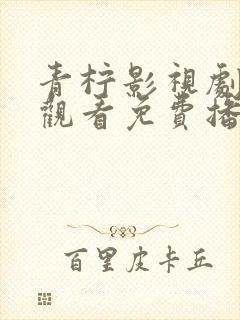 青柠影視劇
觀看免費播
百里皮卡丘